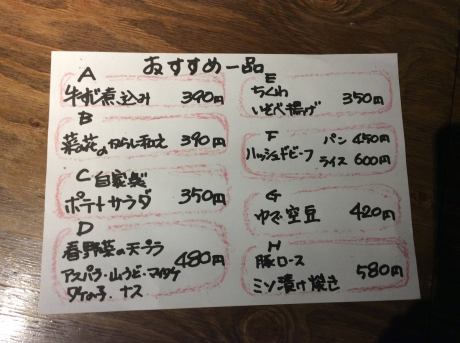 おすすめ一品
A
牛すじ煮込み 390円
B
菜の花のからし和え 390円
C 自家製
ポテトサラダ 350円
D
春野菜の天プラ 480円
アスパラ・山うど・マイタケ
タケの子、ナス
E
ちくわ
いそべ揚げ 350円
F
ハッシュドビーフ パン 450円
ライス 600円
G
ゆで空豆 420円
H
豚ロース
ミソ漬け焼き 580円